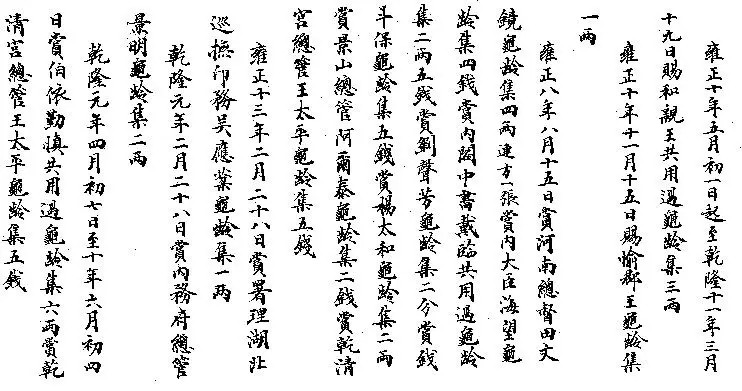 雍正十年五月初一日起至乾隆十一年三月
十九日賜和親王共用過龜齡集三兩
雍正十年十一月十五日賜愉郡王龜齡集
一兩
雍正八年八月十五日賞河南總督田文
鏡龜齡集四兩連方一張賞內大臣海望龜
齡集四錢賞內閣中書戴臨共用過龜齡
集二兩五錢賞劉聲芳龜齡集二分賞錢
斗保龜齡集五錢賞楊太和龜齡集二兩
賞景山總管阿爾泰龜齡集二錢賞乾清
宮總管王太平龜齡集五錢
雍正十三年二月二十八日賞署理湖北
巡撫印務吳應棻龜齡集一兩
乾隆元年二月二十八日賞內務府總管
景明龜齡集二兩
乾隆元年四月初七日至十年六月初四
日賞伯依勤慎共用過龜齡集六兩賞乾
清宮總管王太平龜齡集五錢